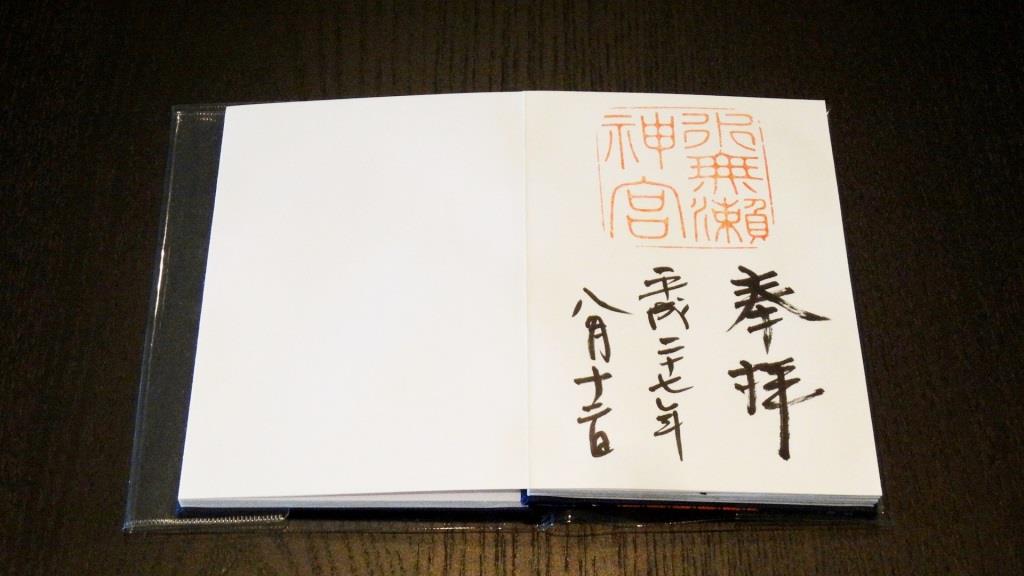 水無瀬
神宮
奉拝
平成二十七年
八月十二日